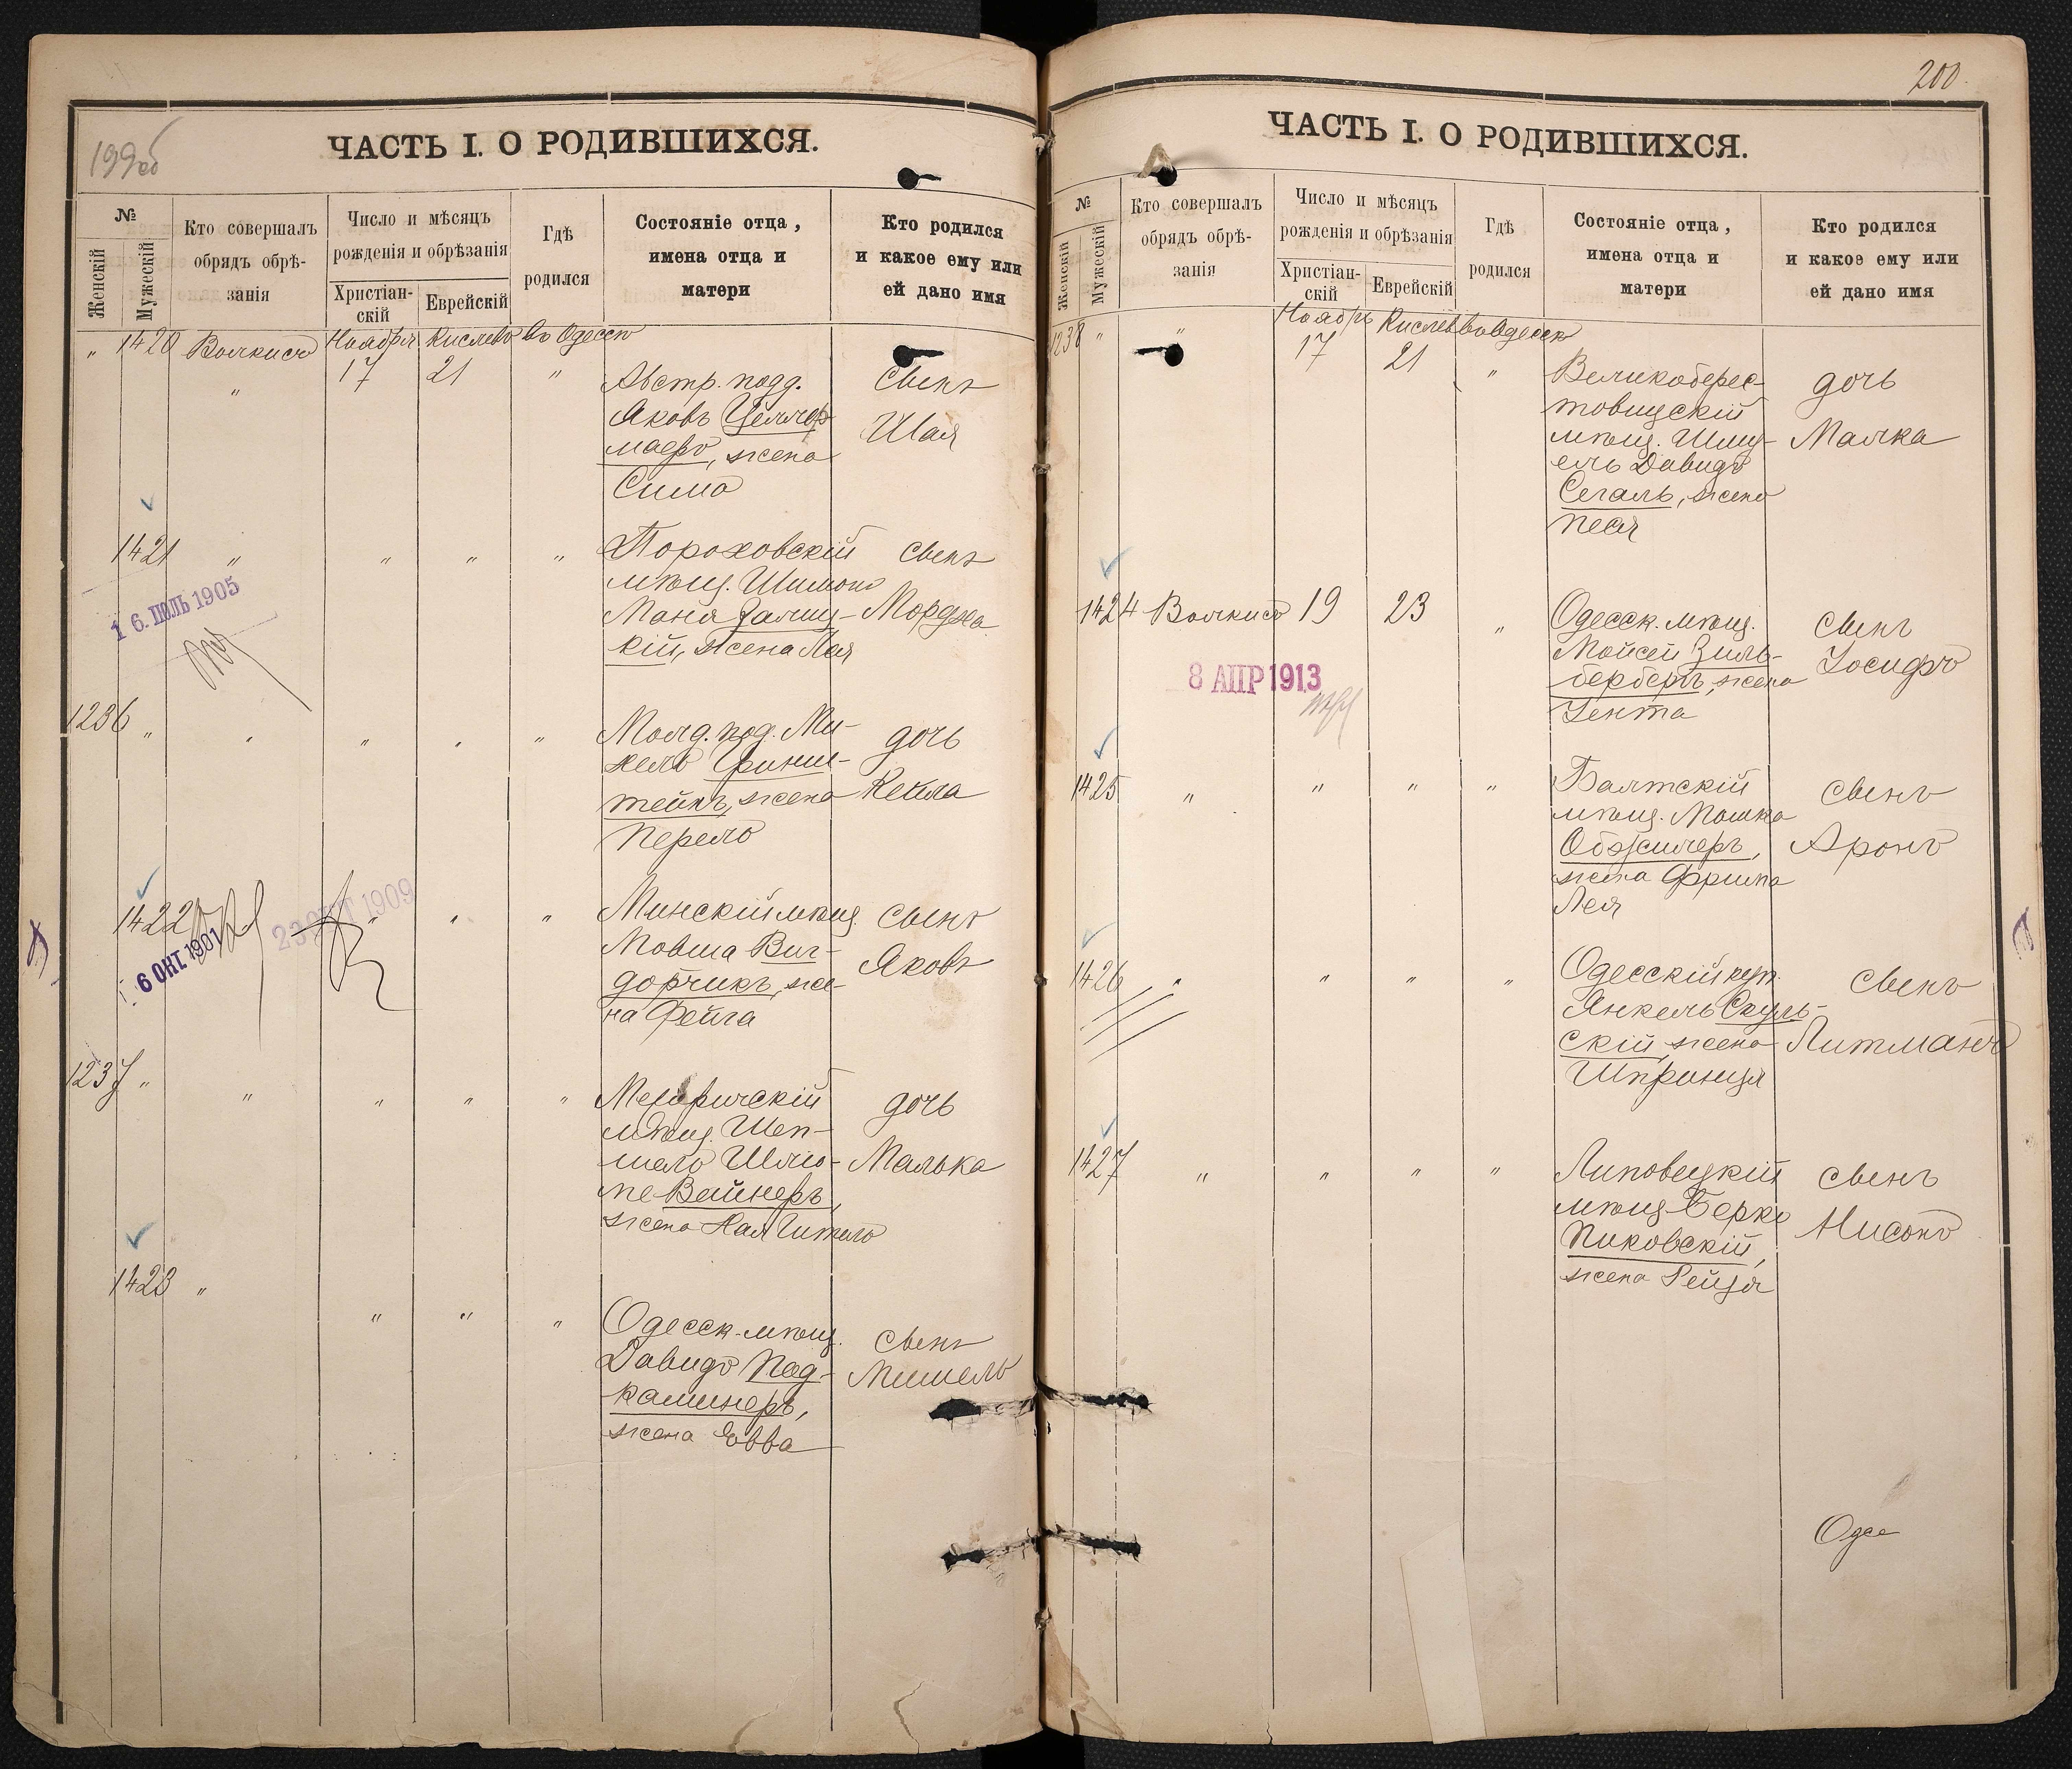 199об
ЧАСТЬ I. О РОДИВШИХСЯ.
№
Женскій
Мужескій
Кто совершалъ
обрядъ обрѣ-
занія
Число и мѣсяцъ
рожденія и обрѣзанія
Христіан-
скій
Еврейскій
Гдѣ
родился
Состояніе отца,
имена отца и
матери
Кто родился
и какое ему или
ей дано имя
" 1420 Ноября Кислевъ Въ Одессѣ
" 17 21 "
Австр. подд.
Яковъ Целлер-
маеръ, жена
Сима
сынъ
Шая
1421 " " " "
Пороховскій
мѣщ. Шимонъ
жена Лея
сынъ
16. ІЮЛЬ 1905
1236 " " " " "
Молд. под. Ми-
хель Финки-
тейнъ, жена
Перель
дочь
Кейла
1422 " " "
Минскій мѣщ.
Мовша Виг-
дорчикъ, же-
на Фейга
сынъ
Яковъ
6 ОКТ 1901
23 ОКТ 1909
1237 " " " " "
мѣщ. Шеп-
шель Шлио-
ме Вайнеръ,
жена Хая Гитель
дочь
Малька
1423 " " " "
Одесск. мѣщ.
Давидъ Под-
каминеръ,
жена Евва
сынъ
Мишель
200.
ЧАСТЬ I. О РОДИВШИХСЯ.
№
Женскій
Мужескій
Кто совершалъ
обрядъ обрѣ-
занія
Число и мѣсяцъ
рожденія и обрѣзанія
Христіан-
скій
Еврейскій
Гдѣ
родился
Состояніе отца,
имена отца и
матери
Кто родился
и какое ему или
ей дано имя
1238 " " Ноябрь Кислевъ Въ Одессѣ
17 21 "
Великоберес-
товицскій
мѣщ. Шму-
ель Давидъ
Сегаль, жена
Песя
дочь
Малка
1424 19 23 "
Одесск. мѣщ.
Мойсей Зиль-
бербергъ, жена
Зента
сынъ
Іосифъ
8 АПР 1913
1425 " " " "
Балтскій
мѣщ. Мошко
жена Фрима
Лея
сынъ
Аронъ
1426 " " " "
Одесскій куп.
Янкель Скуль-
скій, жена
Шпринця
сынъ
Литманъ
1427 " " " "
Липовецкій
мѣщ. Берко
Пиковскій,
жена Рейзя
сынъ
Нисонъ
Одес